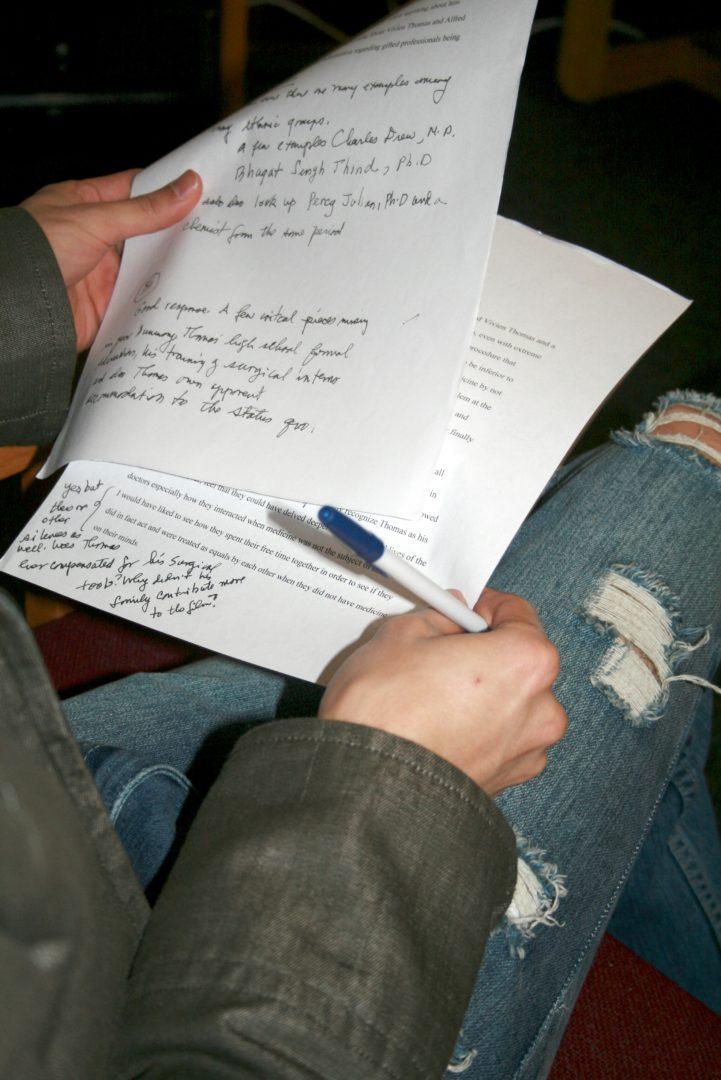 anything about him
about Vivien Thomas and Alfred
regarding gifted professionals being
are many examples among
many ethnic groups.
A few examples Charles Drew, M.D.
Bhagat Singh Thind, Ph.D
also look up Percy Julian, Ph.D and a
chemist from the same period
Good response. A few critical pieces missing
in your summary Thomas' high school formal
education, his training of surgical interns
and also Thomas own apparent
accommodation to the status quo.
of Vivien Thomas and a
, even with extreme
procedure that
be inferior to
icine by not
lem at the
and
finally
all
in
owed
recognize Thomas as his
that they could have delved deeper lives of the
doctors especially how they interacted when medicine was not the subject of
I would have liked to see how they spent their free time together in order to see if they
did in fact act and were treated as equals by each other when they did not have medicine
on their minds.
yes but
there are
other
silences as
well. Was Thomas
ever compensated for his surgical
tools? Why didn't his
family contribute more
to the film?